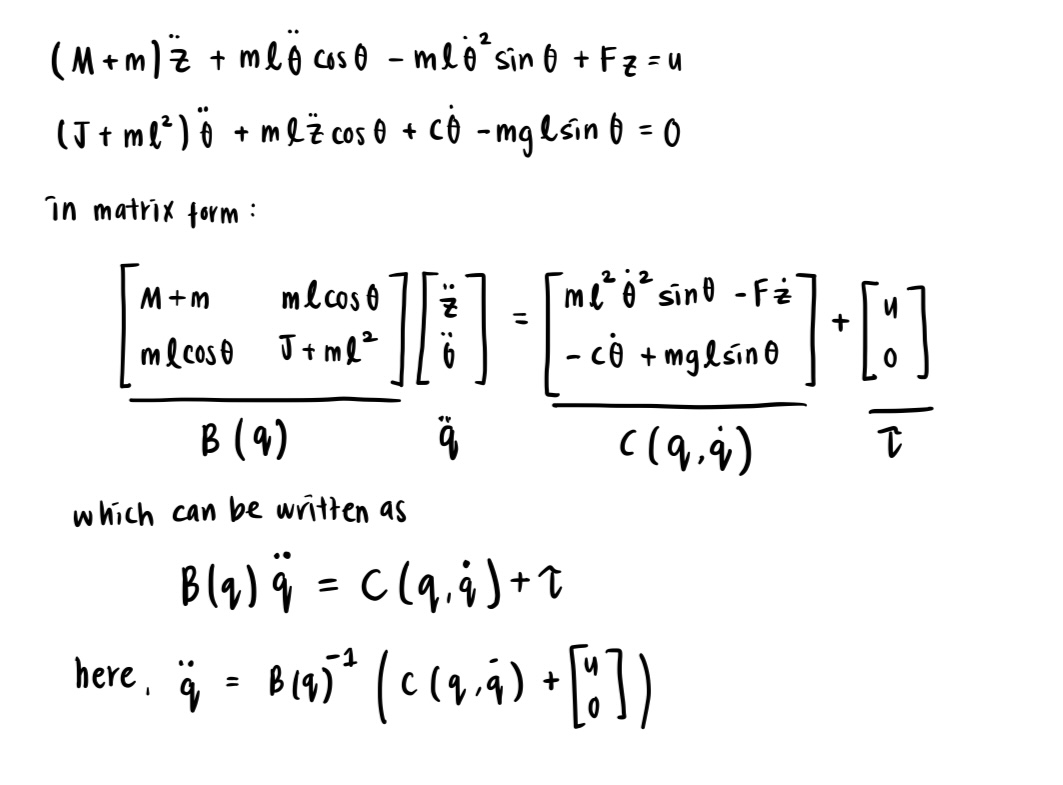 (M+m)z̈ + mlθ̈ cos θ − mlθ̇² sin θ + Fz = u
(J + ml²)θ̈ + mlz̈ cos θ + cθ̇ − mgl sin θ = 0
in matrix form :
[M+m  mlcosθ; mlcosθ  J + ml²] [z̈; θ̈] = [ml²θ̇² sinθ − Fż; −cθ̇ + mglsinθ] + [u; 0]
B(q)  q̈  C(q,q̇)  τ
which can be written as
B(q) q̈ = C(q,q̇) + τ
here, q̈ = B(q)⁻¹ (C(q,q̇) + [u; 0])